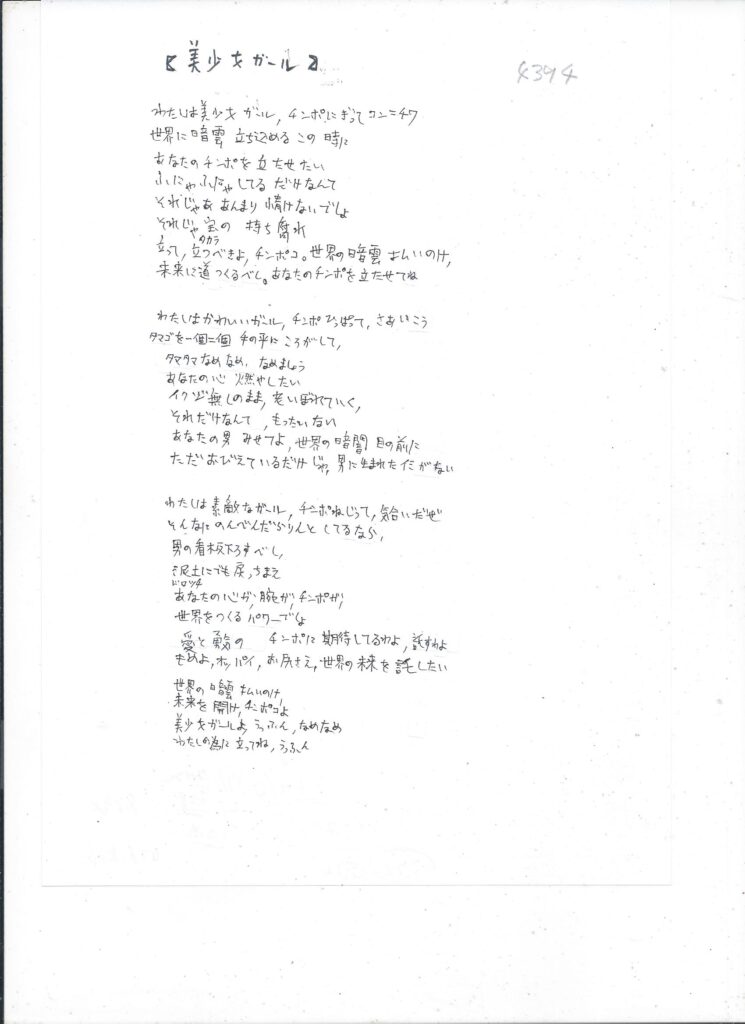 【美少女ガール】
4394
わたしは美少女ガール,チンポにぎってコンニチワ
世界に暗雲 立ち込める この 時に
あなたのチンポを 立たせたい
ふにゃふにゃしてる だけなんて
それじゃあ あんまり 情けないでしょ
それじゃ宝の 持ち腐れ
タカラ
立って,立つべきよ,チンポコ。世界の暗雲 払いのけ,
未来に道つくるべし。あなたのチンポを 立たせてね
わたしはかわいいガール,チンポひっぱって,さあいこう
タマゴを一個二個 手の平に ころがして,
タマタマなめなめ,なめましょう
あなたの心 燃やしたい
イクジ無しのまま,老いぼれていく,
それだけなんて,もったいない
あなたの男 みせてよ,世界の暗闇 目の前に
ただ おびえているだけ じゃ,男に生まれたイミがない
わたしは素敵なガール,チンポねじって,気合いだぜ
そんなに のんべんだらりんと してるなら,
男の看板下ろすべし,
泥土にでも 戻っちまえ
ドロツチ
あなたの心が,腕が,チンポが,
世界をつくる パワーでしょ
愛と勇気の チンポに 期待してるわよ,託すわよ
もめよ,オッパイ,お尻さえ,世界の未来を 託したい
世界の 暗雲 払いのけ,
未来を 開け,チンポコよ
美少女ガールよ,うっふん,なめなめ
わたしの為に 立ってね,うっふん